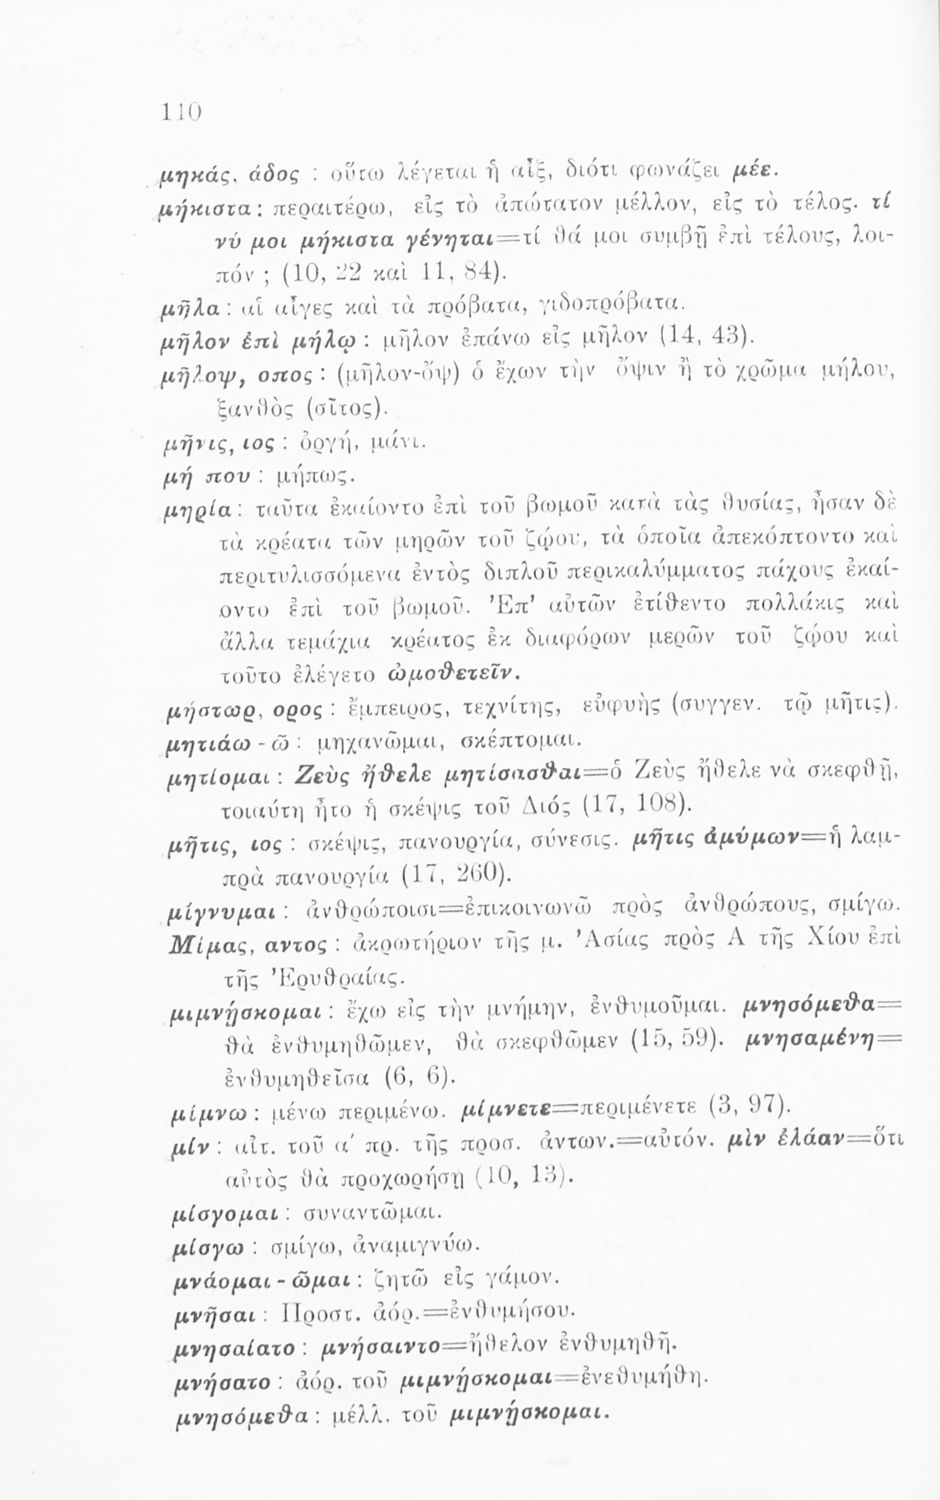 110
μηκάς, άδος : οὕτω λέγεται ἡ αἴξ, διότι φωνάζει μέε.
μήκιστα : περαιτέρω, εἰς τὸ ἀπώτατον μέλλον, εἰς τὸ τέλος. τί
νύ μοι μήκιστα γένηται=τί θά μοι συμβῇ ἐπὶ τέλους, λοι-
πόν ; (10, 22 καὶ 11, 84).
μῆλα : αἱ αἶγες καὶ τὰ πρόβατα, γιδοπρόβατα.
μῆλον ἐπὶ μήλῳ : μῆλον ἐπάνω εἰς μῆλον (14, 43).
μῆλοψ, οπος : (μῆλον-ὄψ) ὁ ἔχων τὴν ὄψιν ἢ τὸ χρῶμα μήλου,
ξανθὸς (σῖτος).
μῆνις, ιος : ὀργή, μάνι.
μή που : μήπως.
μηρία : ταῦτα ἐκαίοντο ἐπὶ τοῦ βωμοῦ κατὰ τὰς θυσίας, ἦσαν δὲ
τὰ κρέατα τῶν μηρῶν τοῦ ζῴου, τὰ ὁποῖα ἀπεκόπτοντο καὶ
περιτυλισσόμενα ἐντὸς διπλοῦ περικαλύμματος πάχους ἐκαί-
οντο ἐπὶ τοῦ βωμοῦ. Ἐπ’ αὐτῶν ἐτίθεντο πολλάκις καὶ
ἄλλα τεμάχια κρέατος ἐκ διαφόρων μερῶν τοῦ ζῴου καὶ
τοῦτο ἐλέγετο ὠμοθετεῖν.
μήστωρ, ορος : ἔμπειρος, τεχνίτης, εὐφυὴς (συγγεν. τῷ μῆτις).
μητιάω - ῶ : μηχανῶμαι, σκέπτομαι.
μητίομαι : Ζεὺς ἤθελε μητίσασθαι=ὁ Ζεὺς ἤθελε νὰ σκεφθῇ,
τοιαύτη ἦτο ἡ σκέψις τοῦ Διός (17, 108).
μῆτις, ιος : σκέψις, πανουργία, σύνεσις. μῆτις ἀμύμων=ἡ λαμ-
πρὰ πανουργία (17, 260).
μίγνυμαι : ἀνθρώποισι=ἐπικοινωνῶ πρὸς ἀνθρώπους, σμίγω.
Μίμας, αντος : ἀκρωτήριον τῆς μ. Ἀσίας πρὸς Α τῆς Χίου ἐπὶ
τῆς Ἐρυθραίας.
μιμνῄσκομαι : ἔχω εἰς τὴν μνήμην, ἐνθυμοῦμαι. μνησόμεθα=
θὰ ἐνθυμηθῶμεν, θὰ σκεφθῶμεν (15, 59). μνησαμένη=
ἐνθυμηθεῖσα (6, 6).
μίμνω : μένω περιμένω. μίμνετε=περιμένετε (3, 97).
μίν : αἰτ. τοῦ α' πρ. τῆς προσ. ἀντων.=αὐτόν. μὶν ἐλάαν=ὅτι
αὐτὸς θὰ προχωρήσῃ (10, 13).
μίσγομαι : συναντῶμαι.
μίσγω : σμίγω, ἀναμιγνύω.
μνάομαι - ῶμαι : ζητῶ εἰς γάμον.
μνῆσαι : Προστ. ἀόρ.=ἐνθυμήσου.
μνησαίατο : μνήσαιντο=ἤθελον ἐνθυμηθῆ.
μνήσατο : ἀόρ. τοῦ μιμνῄσκομαι=ἐνεθυμήθη.
μνησόμεθα : μέλλ. τοῦ μιμνῄσκομαι.